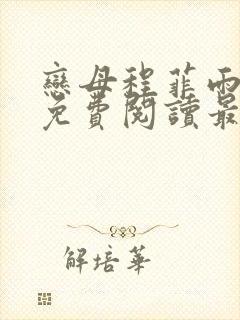 戀母程菲雨
免費閱讀最
解培華